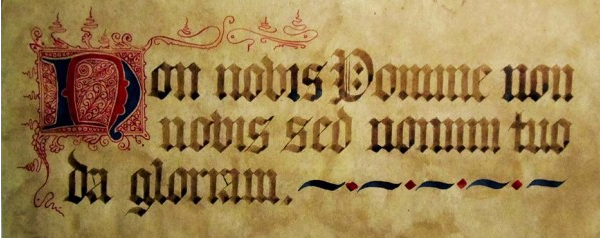 Non nobis Domine non
nobis sed nomini tuo
da gloriam.